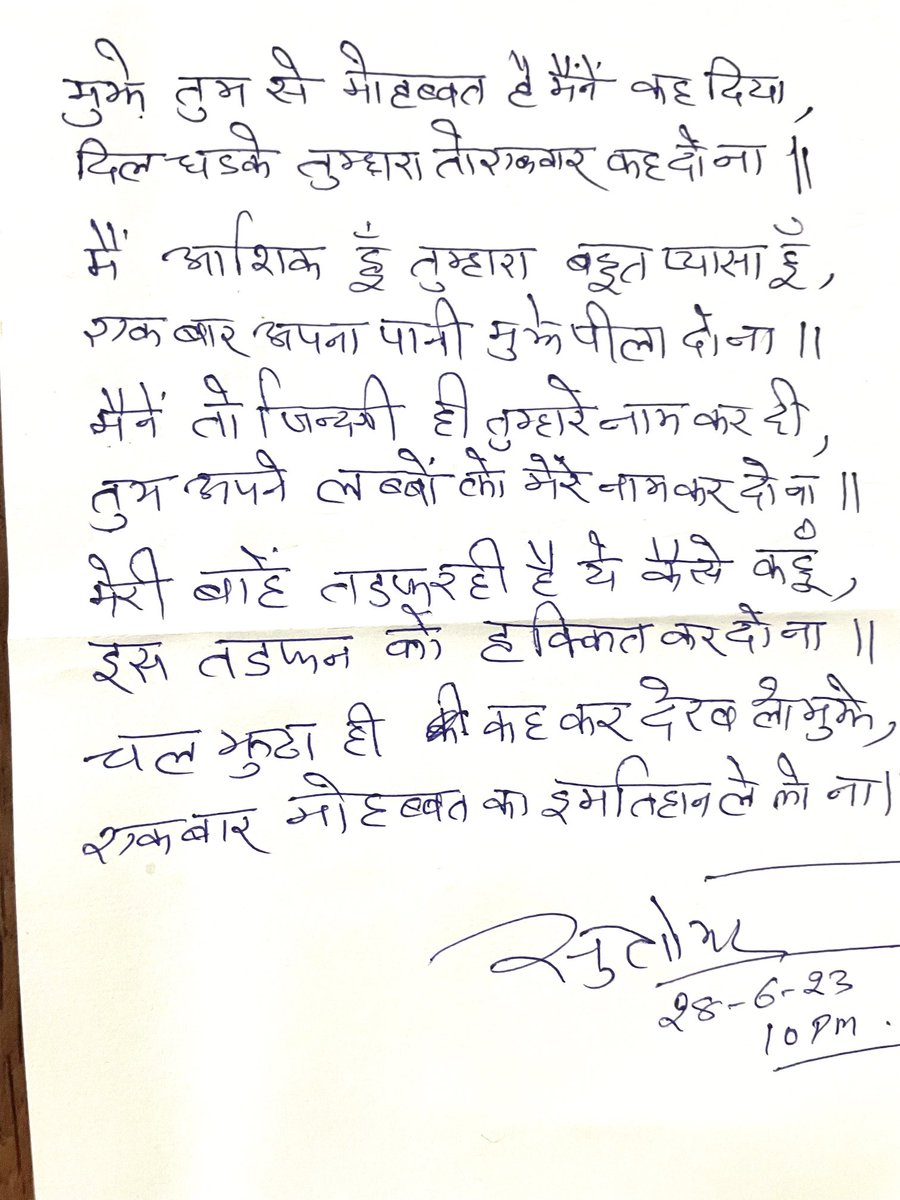 मुझे तुम से मोहब्बत है मैंनें कह दिया,
दिल धडके तुम्हारा तो एकबार कह दो ना ॥
मैं आशिक हूँ तुम्हारा बहूत प्यासा हूँ,
एक बार अपना पानी मुझे पीला दो ना ॥
मैनें तो जिन्दगी ही तुम्हारे नाम कर दी,
तुम अपने लब्बों को मेरे नाम कर दो ना ॥
मेरी बाहें तडफ रही है ये कैसे कहूँ,
इस तडफन को हक्किित कर दो ना ॥
चल झुठा ही कह कर देख लो मुझे,
एक बार मोहब्बत का इमतिहान ले लो ना।
28-6-23
10 PM.